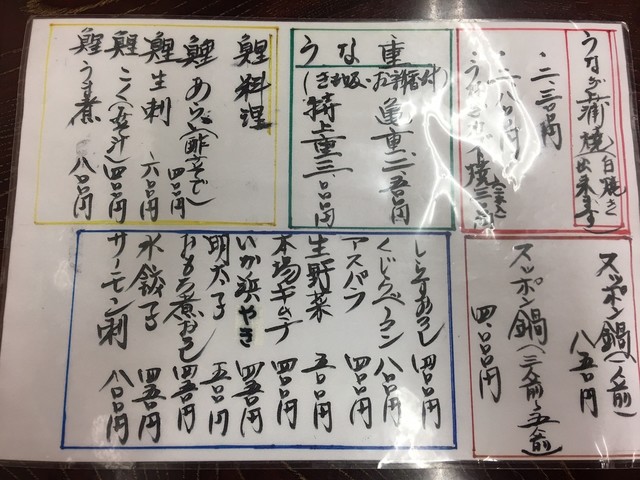 うなぎ蒲焼(白焼き出来ます)
・二、三〇〇円
・二、八〇〇円
うな重
(きも吸・お新香付)
亀重 二、五〇〇円
特上重 三、〇〇〇円
鯉料理
鯉あらい(酢みそ) 四〇〇円
鯉生刺 六〇〇円
鯉こく(みそ汁) 四〇〇円
鯉うま煮 八〇〇円
スッポン鍋(一人前) 八五〇円
スッポン鍋(三人前〜五人前) 四、〇〇〇円
しらすおろし 四〇〇円
くじらベーコン 八〇〇円
アスパラ 四〇〇円
生野菜 五〇〇円
本場キムチ 四〇〇円
いか浜やき 四五〇円
明太子 五〇〇円
おもち煮おろし 四五〇円
水餃子 四五〇円
サーモン刺 八〇〇円